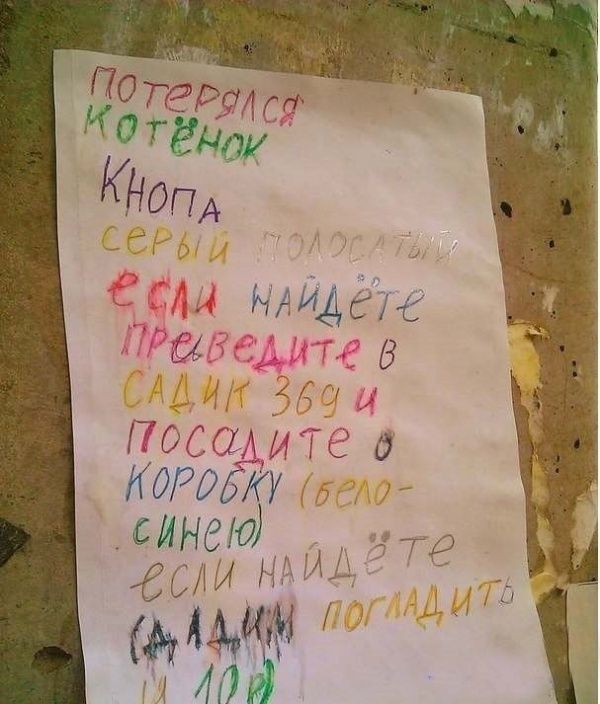 потерялся
котёнок
Кнопа
серый полосатый
если найдёте
преведите в
садик 369 и
посадите в
коробку (бело-
синею)
если найдёте
дадим погладить
и 10р